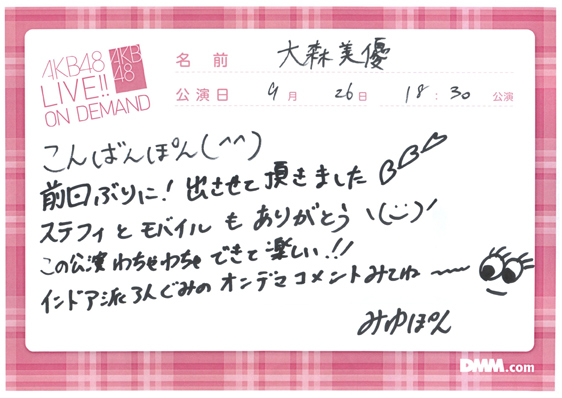 AKB48
LIVE!!
ON DEMAND
AKB
48
名前 大森美優
公演日 9月 26日 18:30 公演
こんばんぽん(^^)
前回ぶりに!出させて頂きました
ステフィとモバイルもありがとう \(・‿・)/
この公演わちゃわちゃできて楽しい!!
インドア派3人ぐみのオンデマコメントみてね〜
みゆぽん
DMM.com